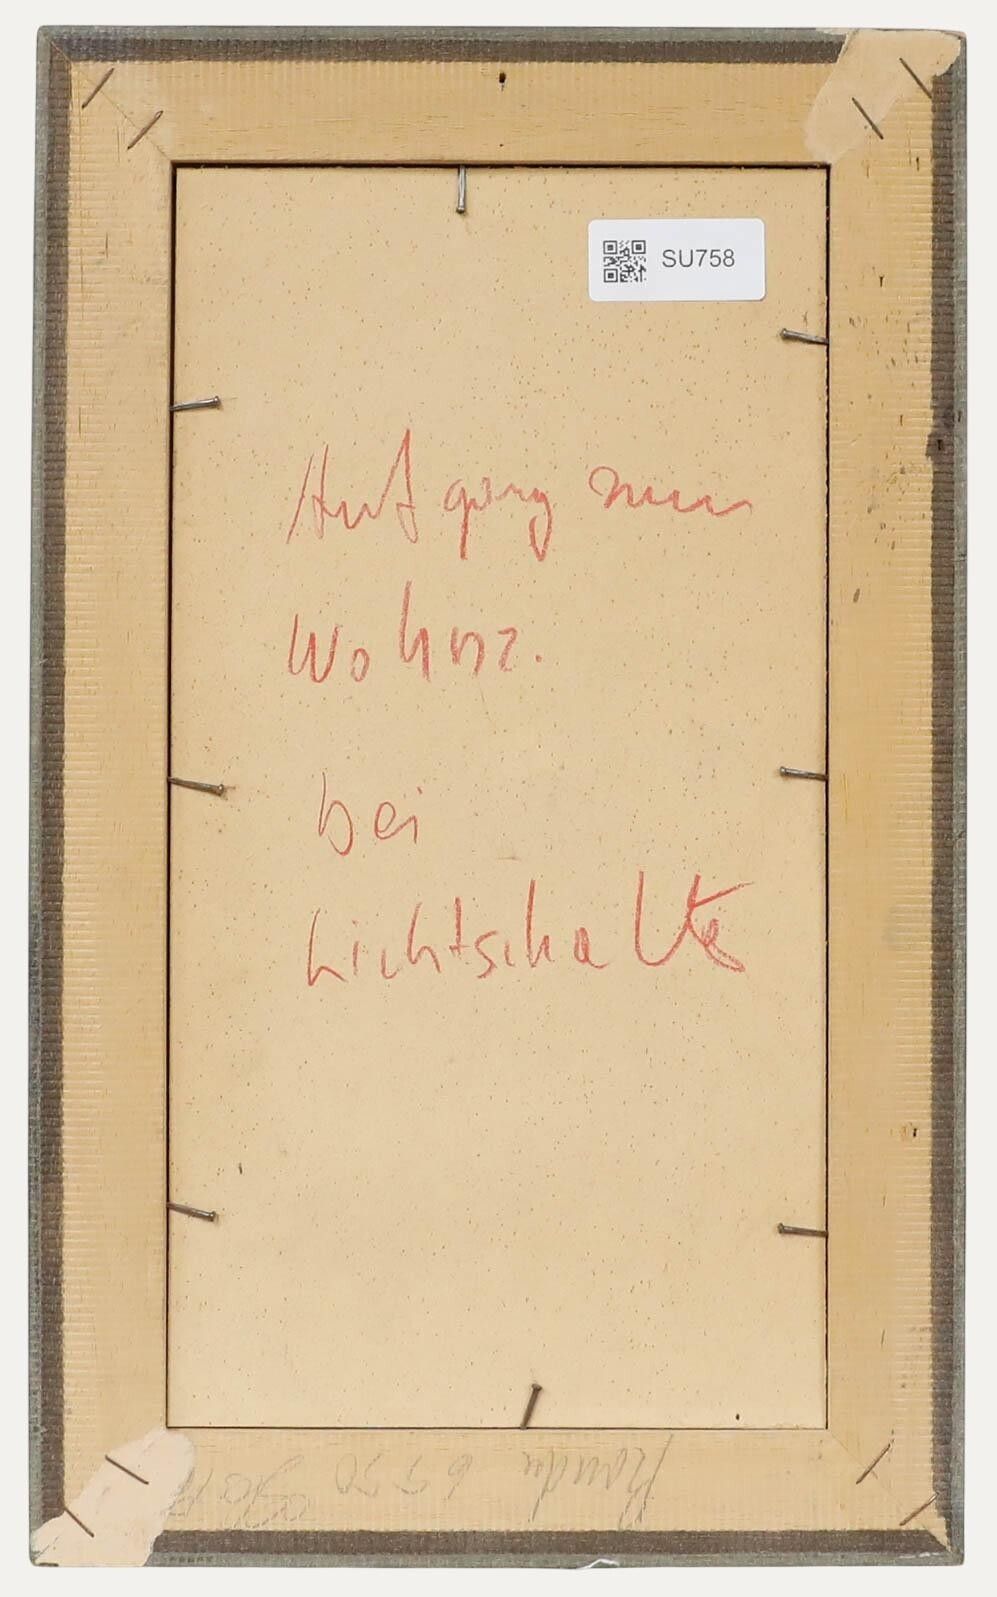 SU758
Aufgang zum
Wohnz.
bei
Lichtschalter